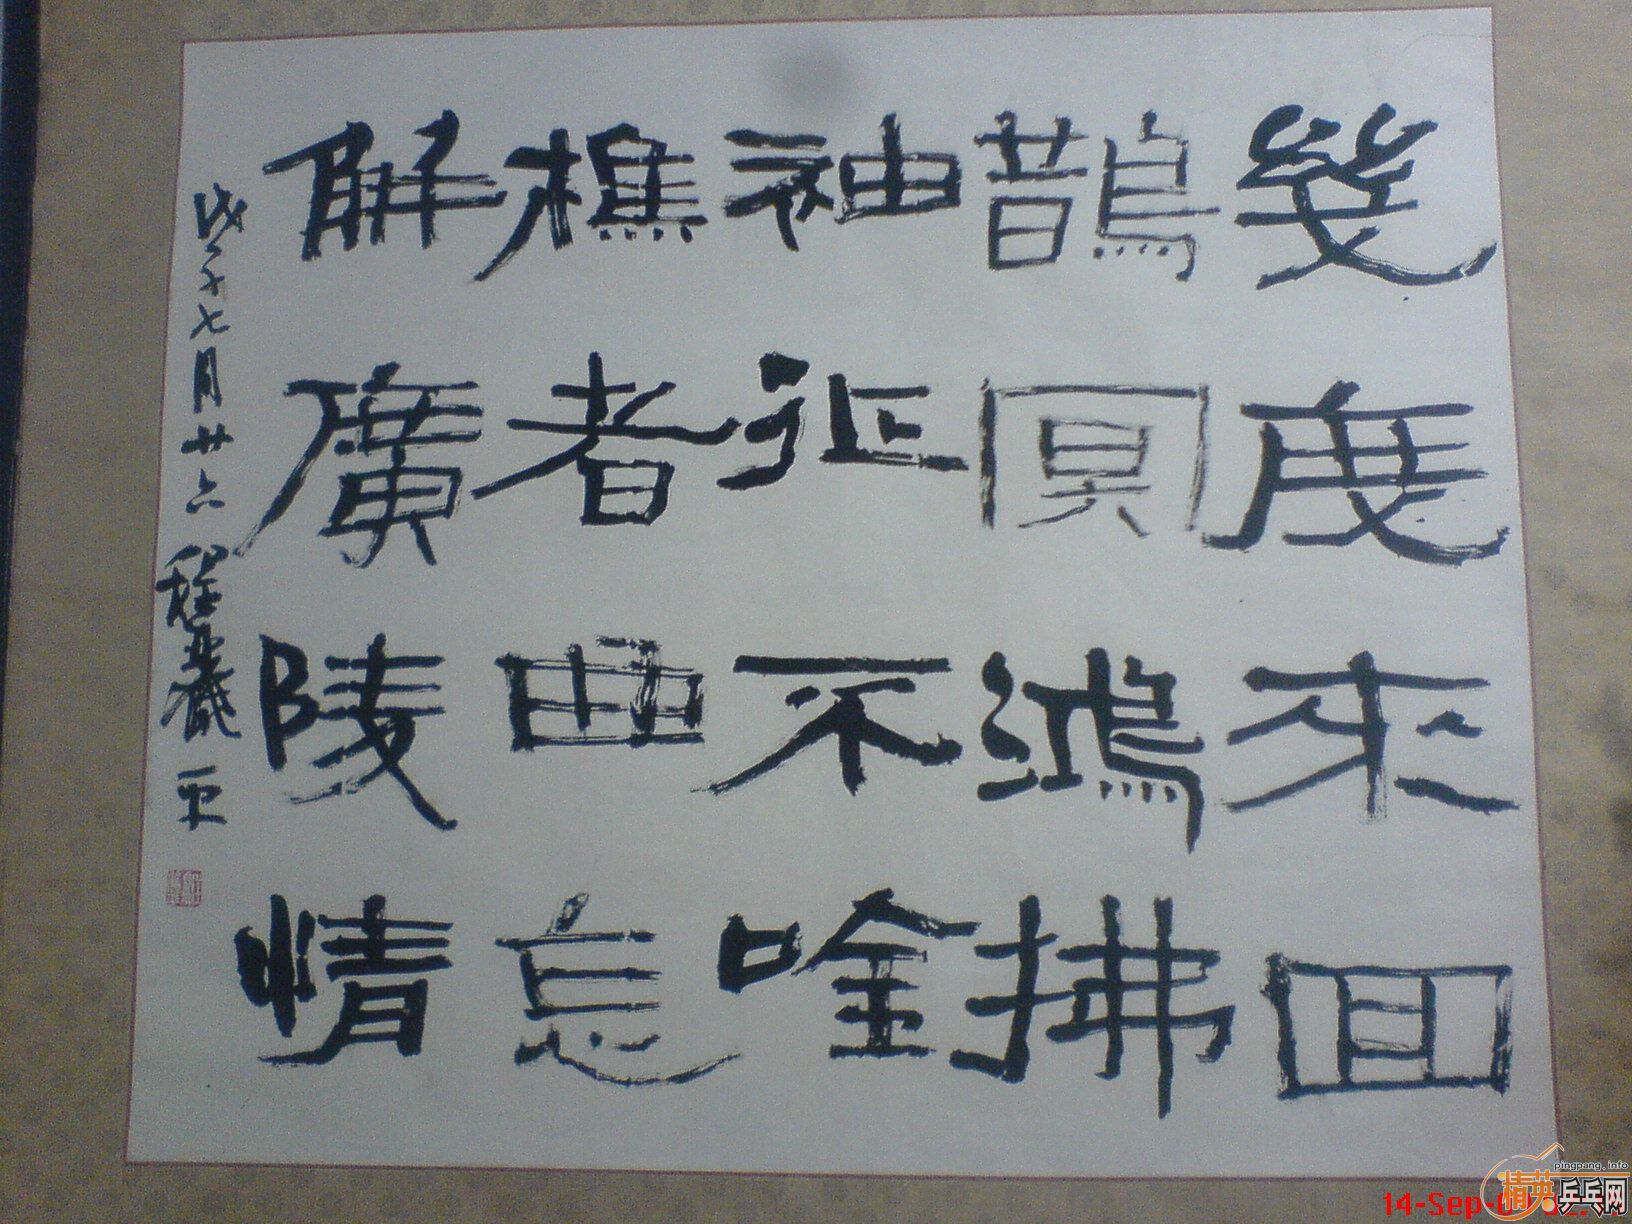 幾度來回
鵲冥鴻拂
袖征不唫
樵者曲忘
解廣陵情
戊子七月廿六
精英乒乓网
pingpang.info
14-Sep-